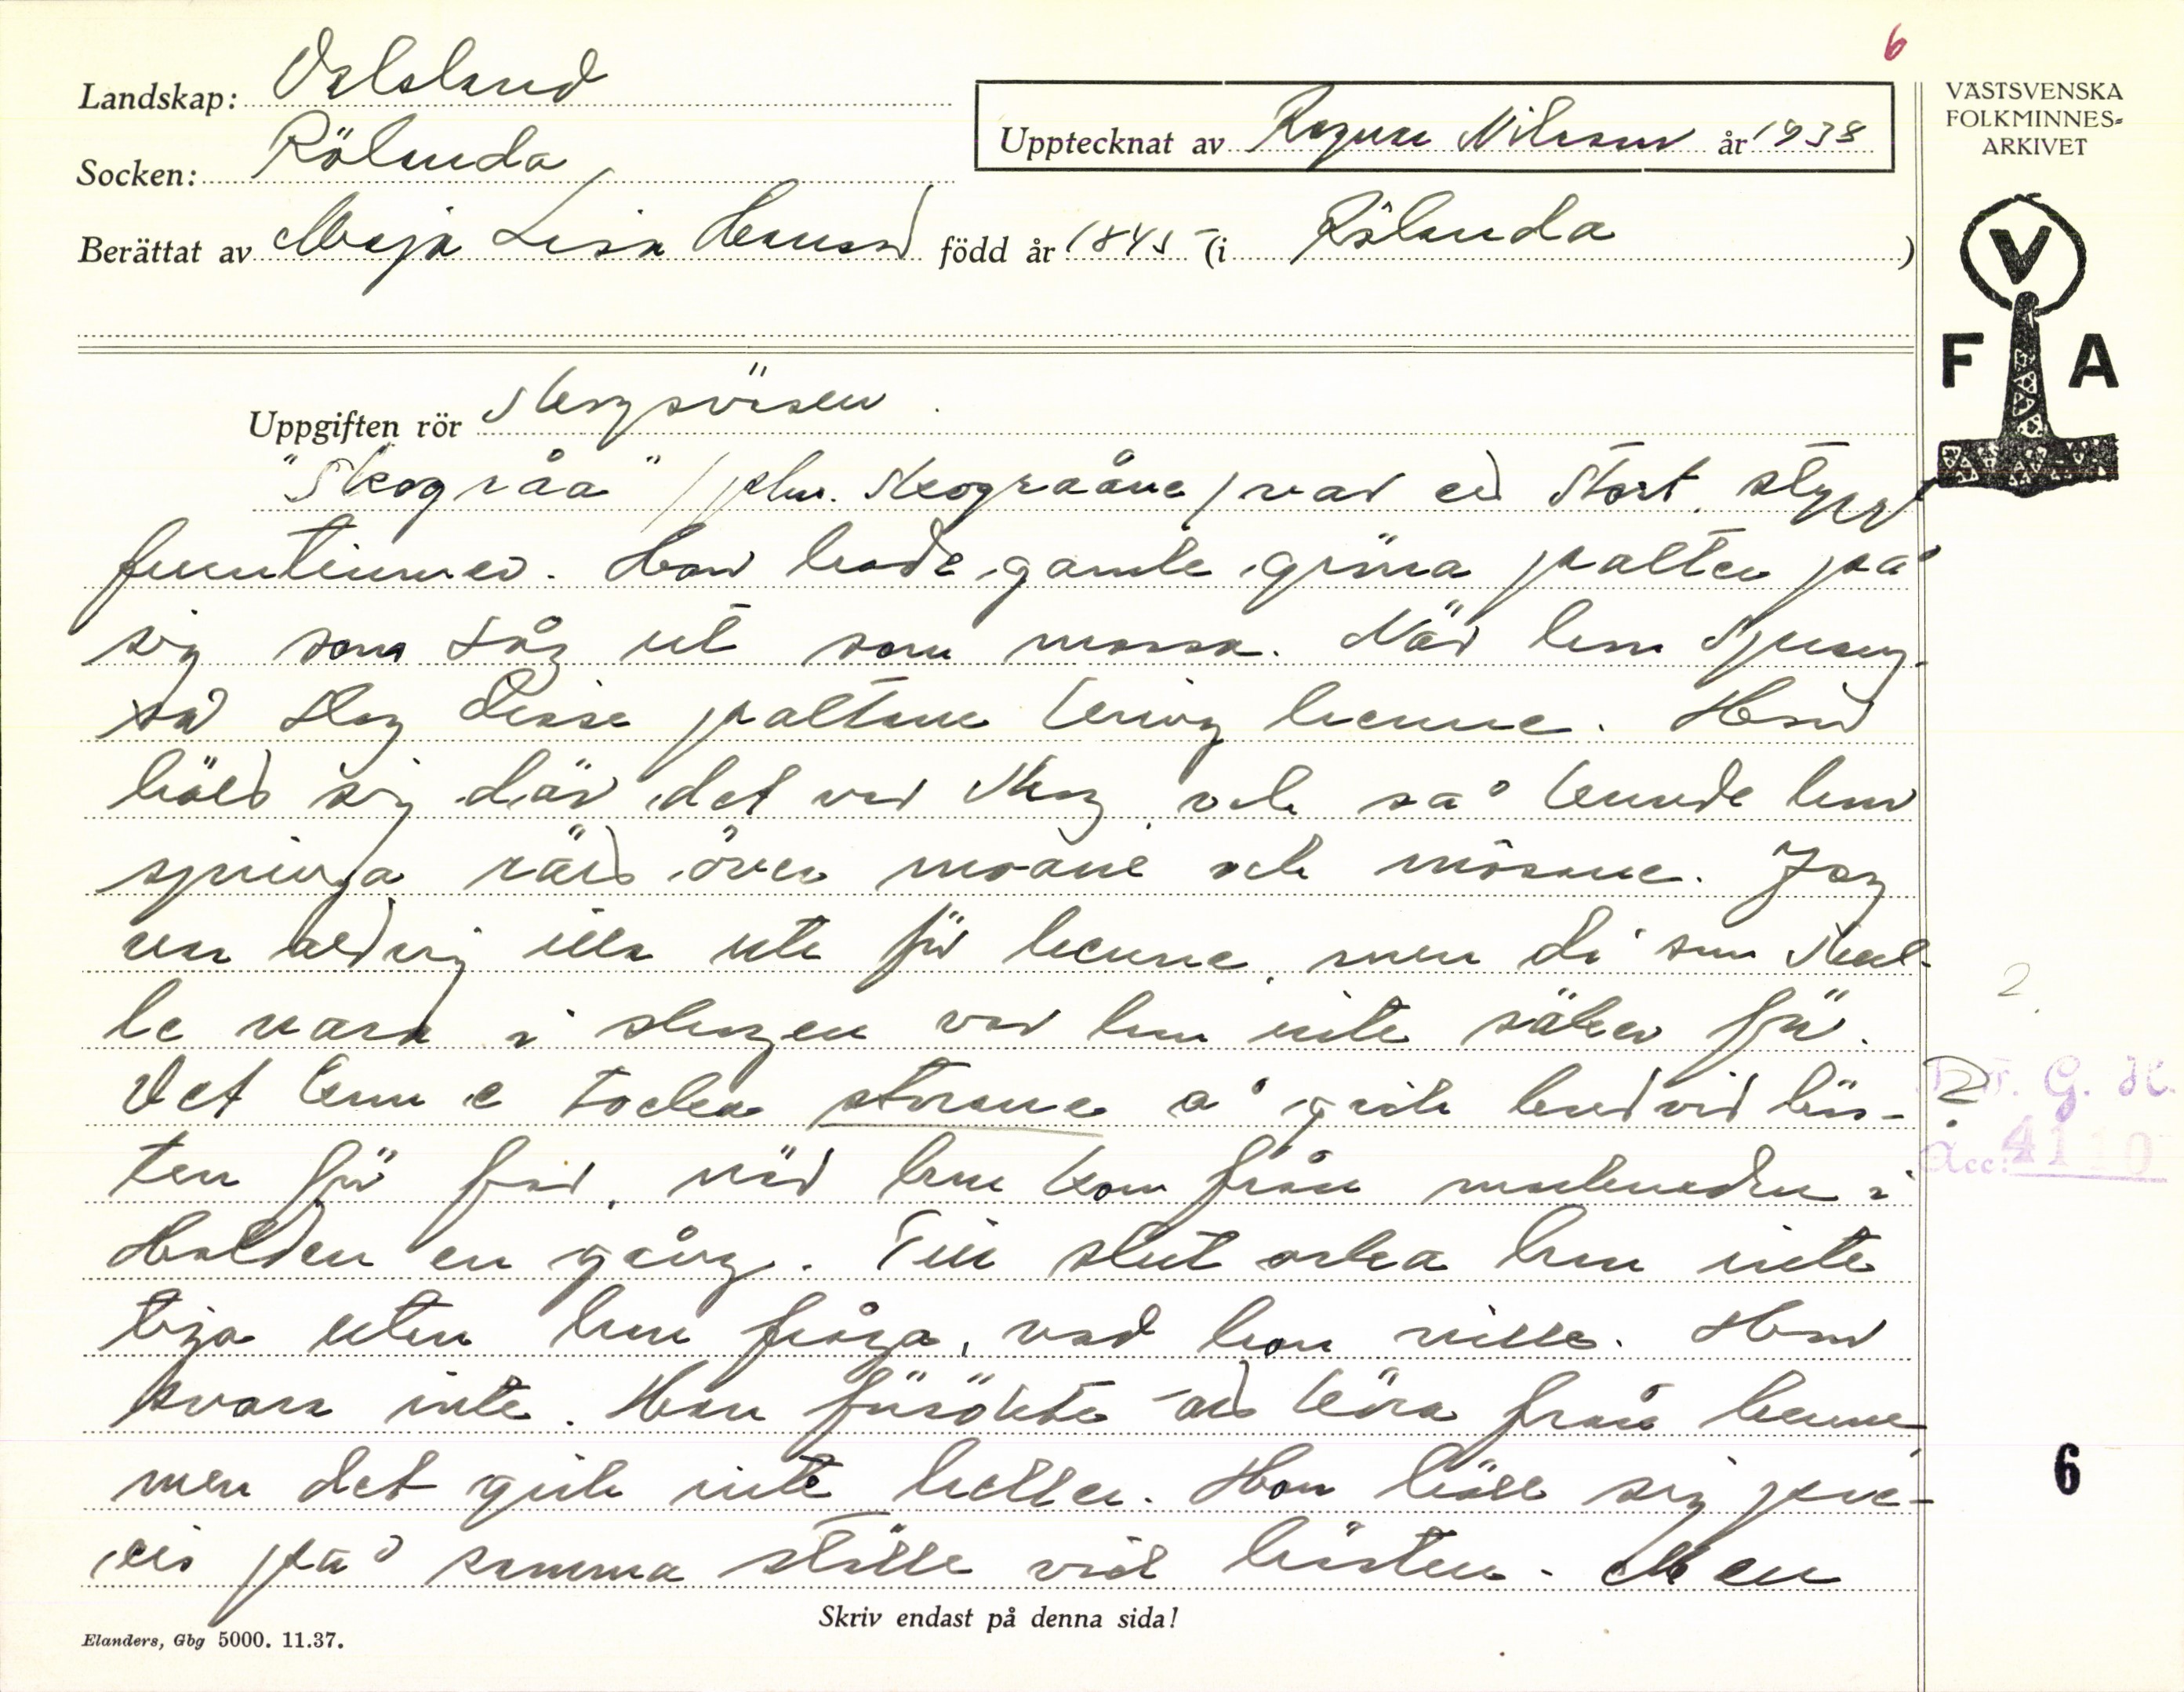 6
Landskap: Dalsland
Upptecknat av Ragnar Nilsson år 1938
Socken: Rölanda
Berättat av Maja Lisa Hansson född år 1845 (i Rölanda)
VÄSTSVENSKA
FOLKMINNES=
ARKIVET
V
F A
Uppgiften rör Skogsväsen.
"Skogråa" /plur. Skogråane/ var ed stort, stygt
fruntimmer. Hon hade gamle gröna palter på
sig som såg ut som mossa. När hon sprang
så slog disse paltane kring henne. Hon
höld sig där det var skog och så kunde hon
springa räd över moane och mosane. Jag
var aldrig illa ute för henne, men di som skul-
le vara i skogen var hon inte säker för.
Det kom e tocka storsne å gick bredvid häs-
ten för far, när han kom från marknaden i
Halden en gång. Till slut orka han inte
tiga utan han fråga, vad hon ville. Hon
svara inte. Han försökte ad köra från henne
men det gick inte heller. Hon höll sig pre-
cis på samma ställe vid hästen. Men
2
2
F. G. H.
Acc: 4110
6
Skriv endast på denna sida!
Elanders, Gbg 5000. 11.37.